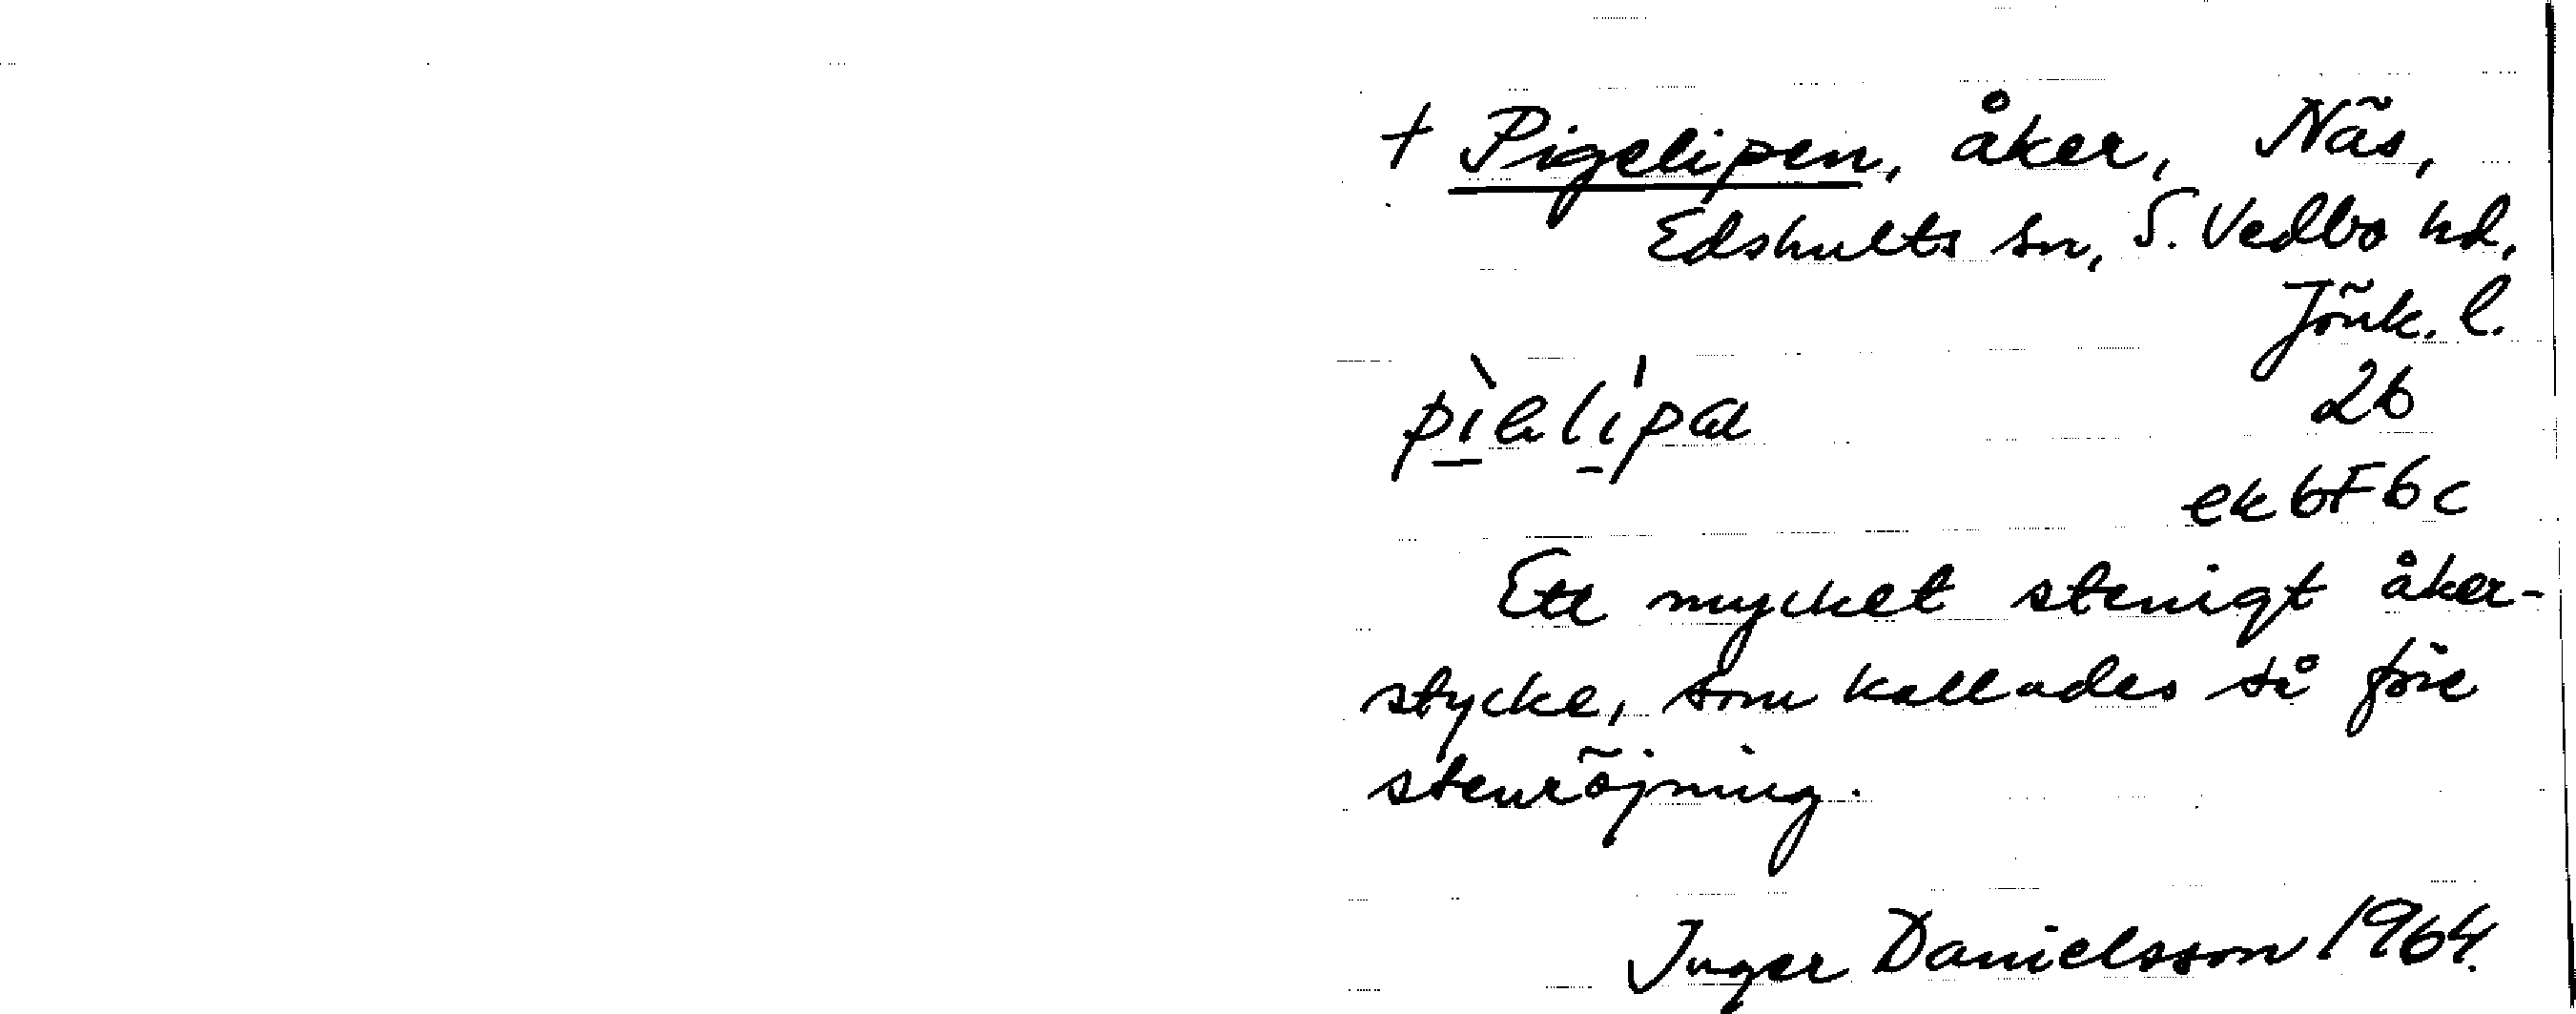 + Pigelipen, åker, Näs,
Edshults sn, S. Vedbo hd,
Jönk. l.
2b
ek 6F6c
Ett mycket stenigt åker-
stycke, som kallades så före
stenröjning.
Inger Danielsson 1964.